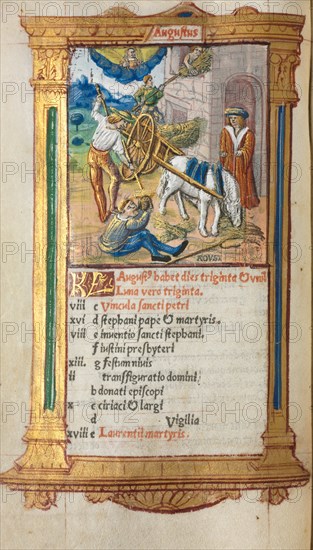 Augustus
AOVST
KL Augustꝰ habet dies triginta & vnū
Luna vero triginta.
viii c Vincula sancti petri
xvi d stephani pape & martyris.
viii e inventio sancti stephani.
f iustini presbyteri
xiii. g festum nivis
ii transfiguratio domini
b donati episcopi
x c ciriaci & largi
d Vigilia
xviii e Laurentii martyris.